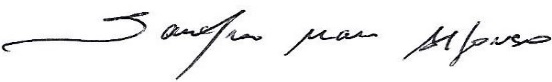 Sandra Mara Alfonso